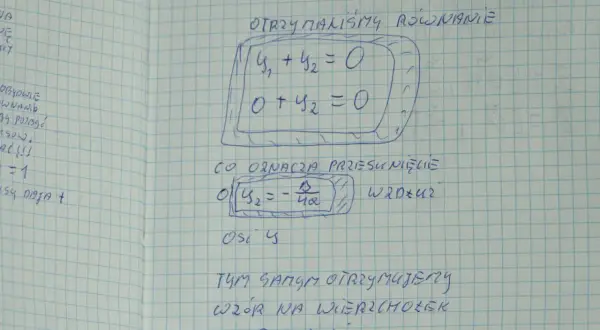 OTRZYMALIŚMY RÓWNANIE
y₁ + y₂ = 0
0 + y₂ = 0
CO OZNACZA PRZESUNIĘCIE
O y₂ = -Δ/4a WZDŁUŻ
OSI y
TYM SAMYM OTRZYMUJEMY
WZÓR NA WIERZCHOŁEK